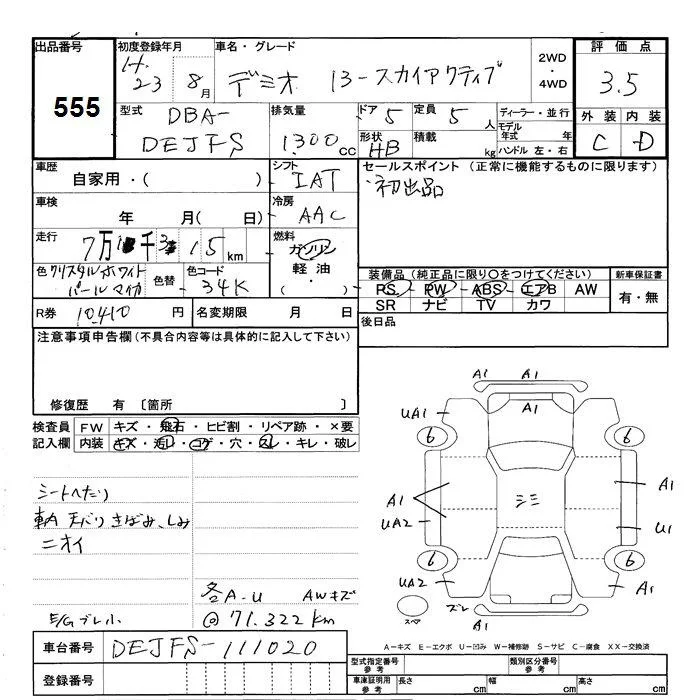 出品番号
555
初度登録年月
H.23 8月
車名・グレード
デミオ 13-スカイアクティブ
2WD
・
4WD
評価点
3.5
型式
DBA-
DEJFS
排気量
1300cc
ドア
5
定員
5人
形状
HB
積載
kg
ディーラー・並行
モデル年式 年
ハンドル 左・右
外装 内装
C D
車歴
自家用・( )
シフト
IAT
セールスポイント (正常に機能するものに限ります)
初出品
車検
年 月( 日)
冷房
AAC
走行
7万 千3 15km
燃料
ガソリン
軽油
( ・ )
色 クリスタルホワイト
パールマイカ
色替
色コード
34K
装備品(純正品に限り○をつけてください)
PS PW ABS エアB AW
SR ナビ TV カワ
新車保証書
有・無
R券
10,410円
名変期限 月 日
後日品
注意事項申告欄(不具合内容等は具体的に記入して下さい)
修復歴 有 〔箇所 〕
検査員記入欄
FW キズ・飛石・ヒビ割・リペア跡・×要
内装 キズ・汚れ・コゲ・穴・スレ・キレ・破レ
シートへたり
天バリ きばみ、しみ
ニオイ
各A-U AWキズ
E/Gブレ小
@71.322km
A1 A1
UA1 A1
6 6
A1 ミミ A1
UA2 U1
6 6
UA2 A1
スペア ズレ
A1
A-キズ E-エクボ U-凹み W-補修跡 S-サビ C-腐食 XX-交換済
車台番号
DEJFS-111020
登録番号
型式指定番号 参考
類別区分番号 参考
車庫証明用 参考
長さ cm 幅 cm 高さ cm